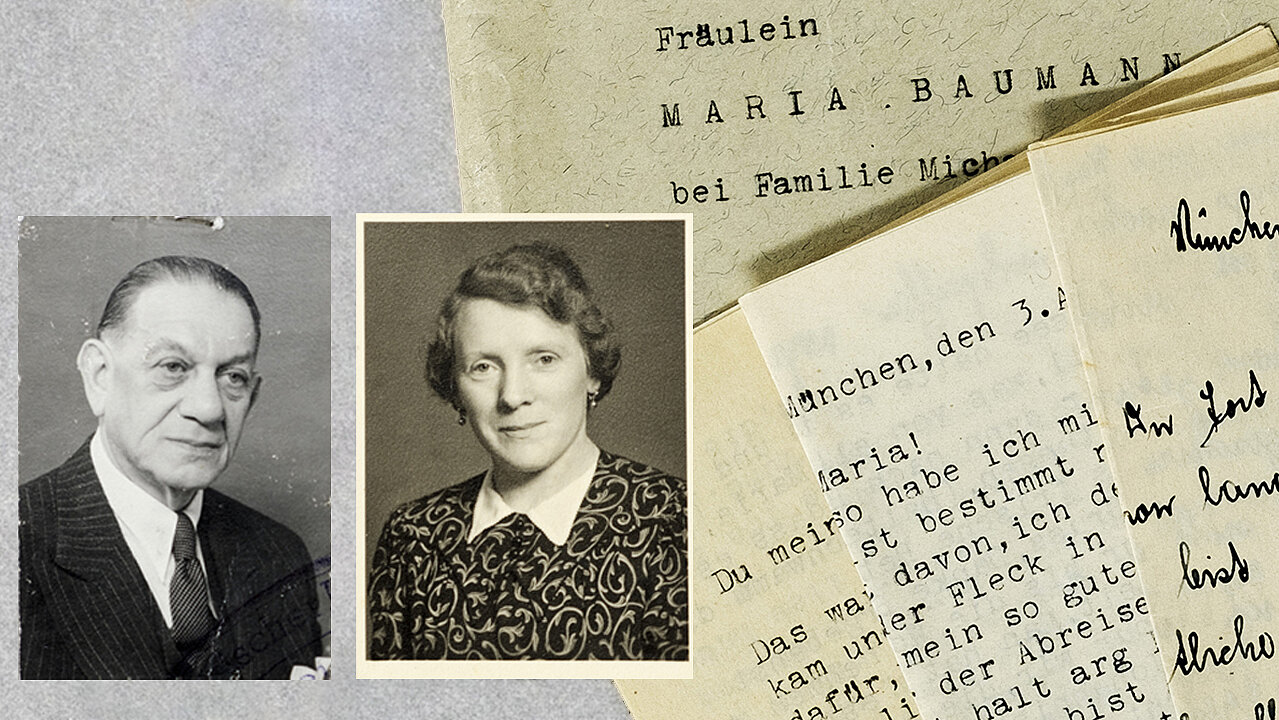 Fräulein
MARIA . BAUMANN
bei Familie Mich
München, den 3.A
Maria!
so habe ich mi
st bestimmt
davon, ich de
er Fleck in
mein so gute
der Abreise
halt arg
bist
Du mein
Das wa
kam un
dafür,
li
München
bist